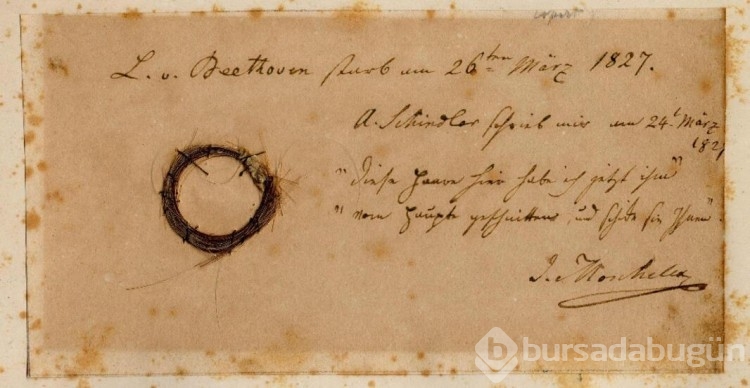 L. v. Beethoven starb am 26ten März 1827.
A. Schindler schrieb mir am 24t März
1827
"diese Haare hier habe ich jetzt ihm"
"vom Haupte geschnitten, und schicke sie Ihnen".
I. Moscheles
b bursadabugün